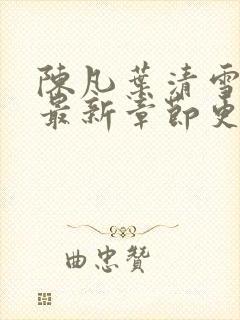 陳凡葉清雪
最新章節更
曲忠贊